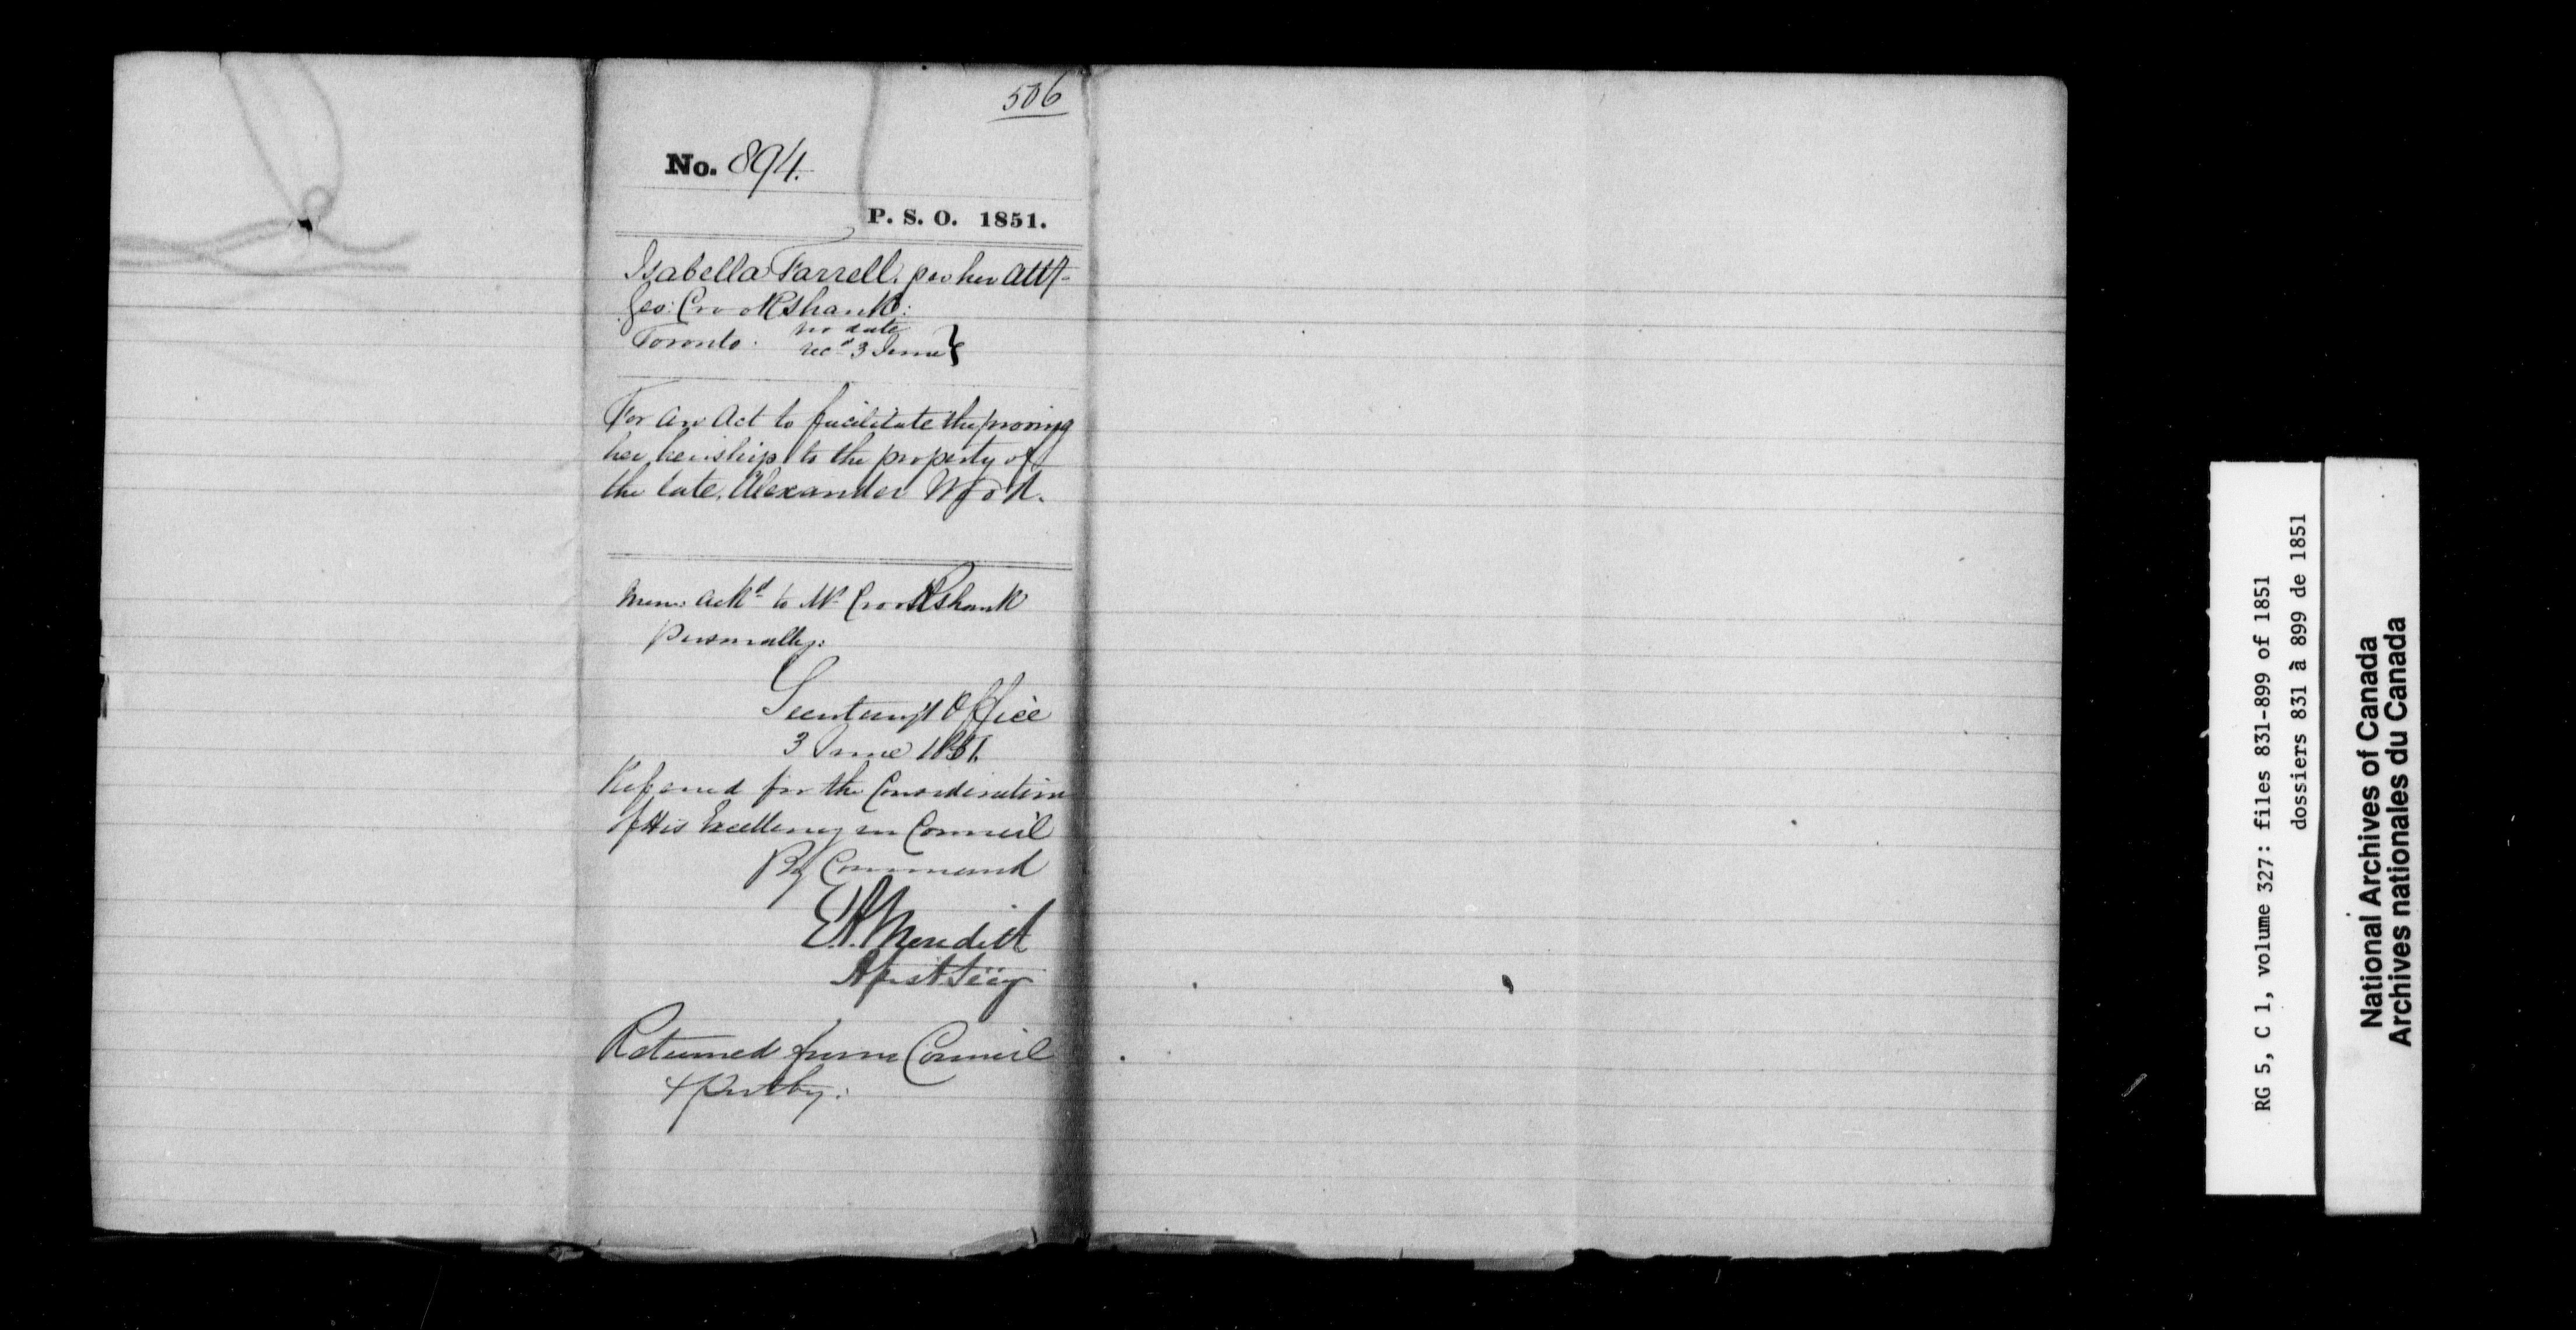 506
No. 894.
P. S. O. 1851.
Isabella Farrell, per her Atty
Geo: Crookshank:
no date
Toronto. recd 3 June }
For an Act to facilitate the proving
her heirship to the property of
the late, Alexander Wood.
Mem: ackd to Mr Crookshank
Personally:
Secretary's Office
3 June 1851.
Referred for the Consideration
of His Excellency in Council
By Command
E.A. Meredith
Asst Secy
Returned from Council
RG 5, C 1, volume 327: files 831-899 of 1851
dossiers 831 à 899 de 1851
National Archives of Canada
Archives nationales du Canada